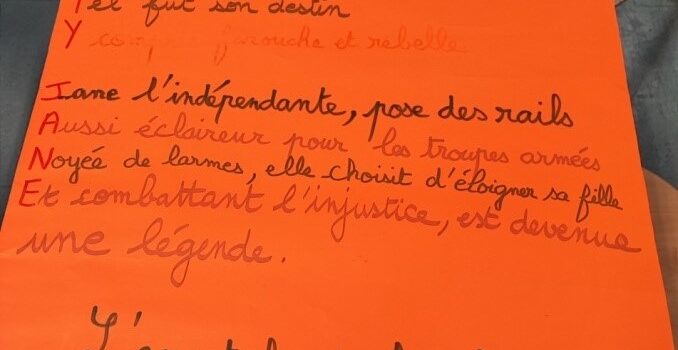 Tel fut son destin
Y compris farouche et rebelle
Jane l'indépendante, pose des rails
Aussi éclaireur pour les troupes armées
Noyée de larmes, elle choisit d'éloigner sa fille
Et combattant l'injustice, est devenue
une légende.